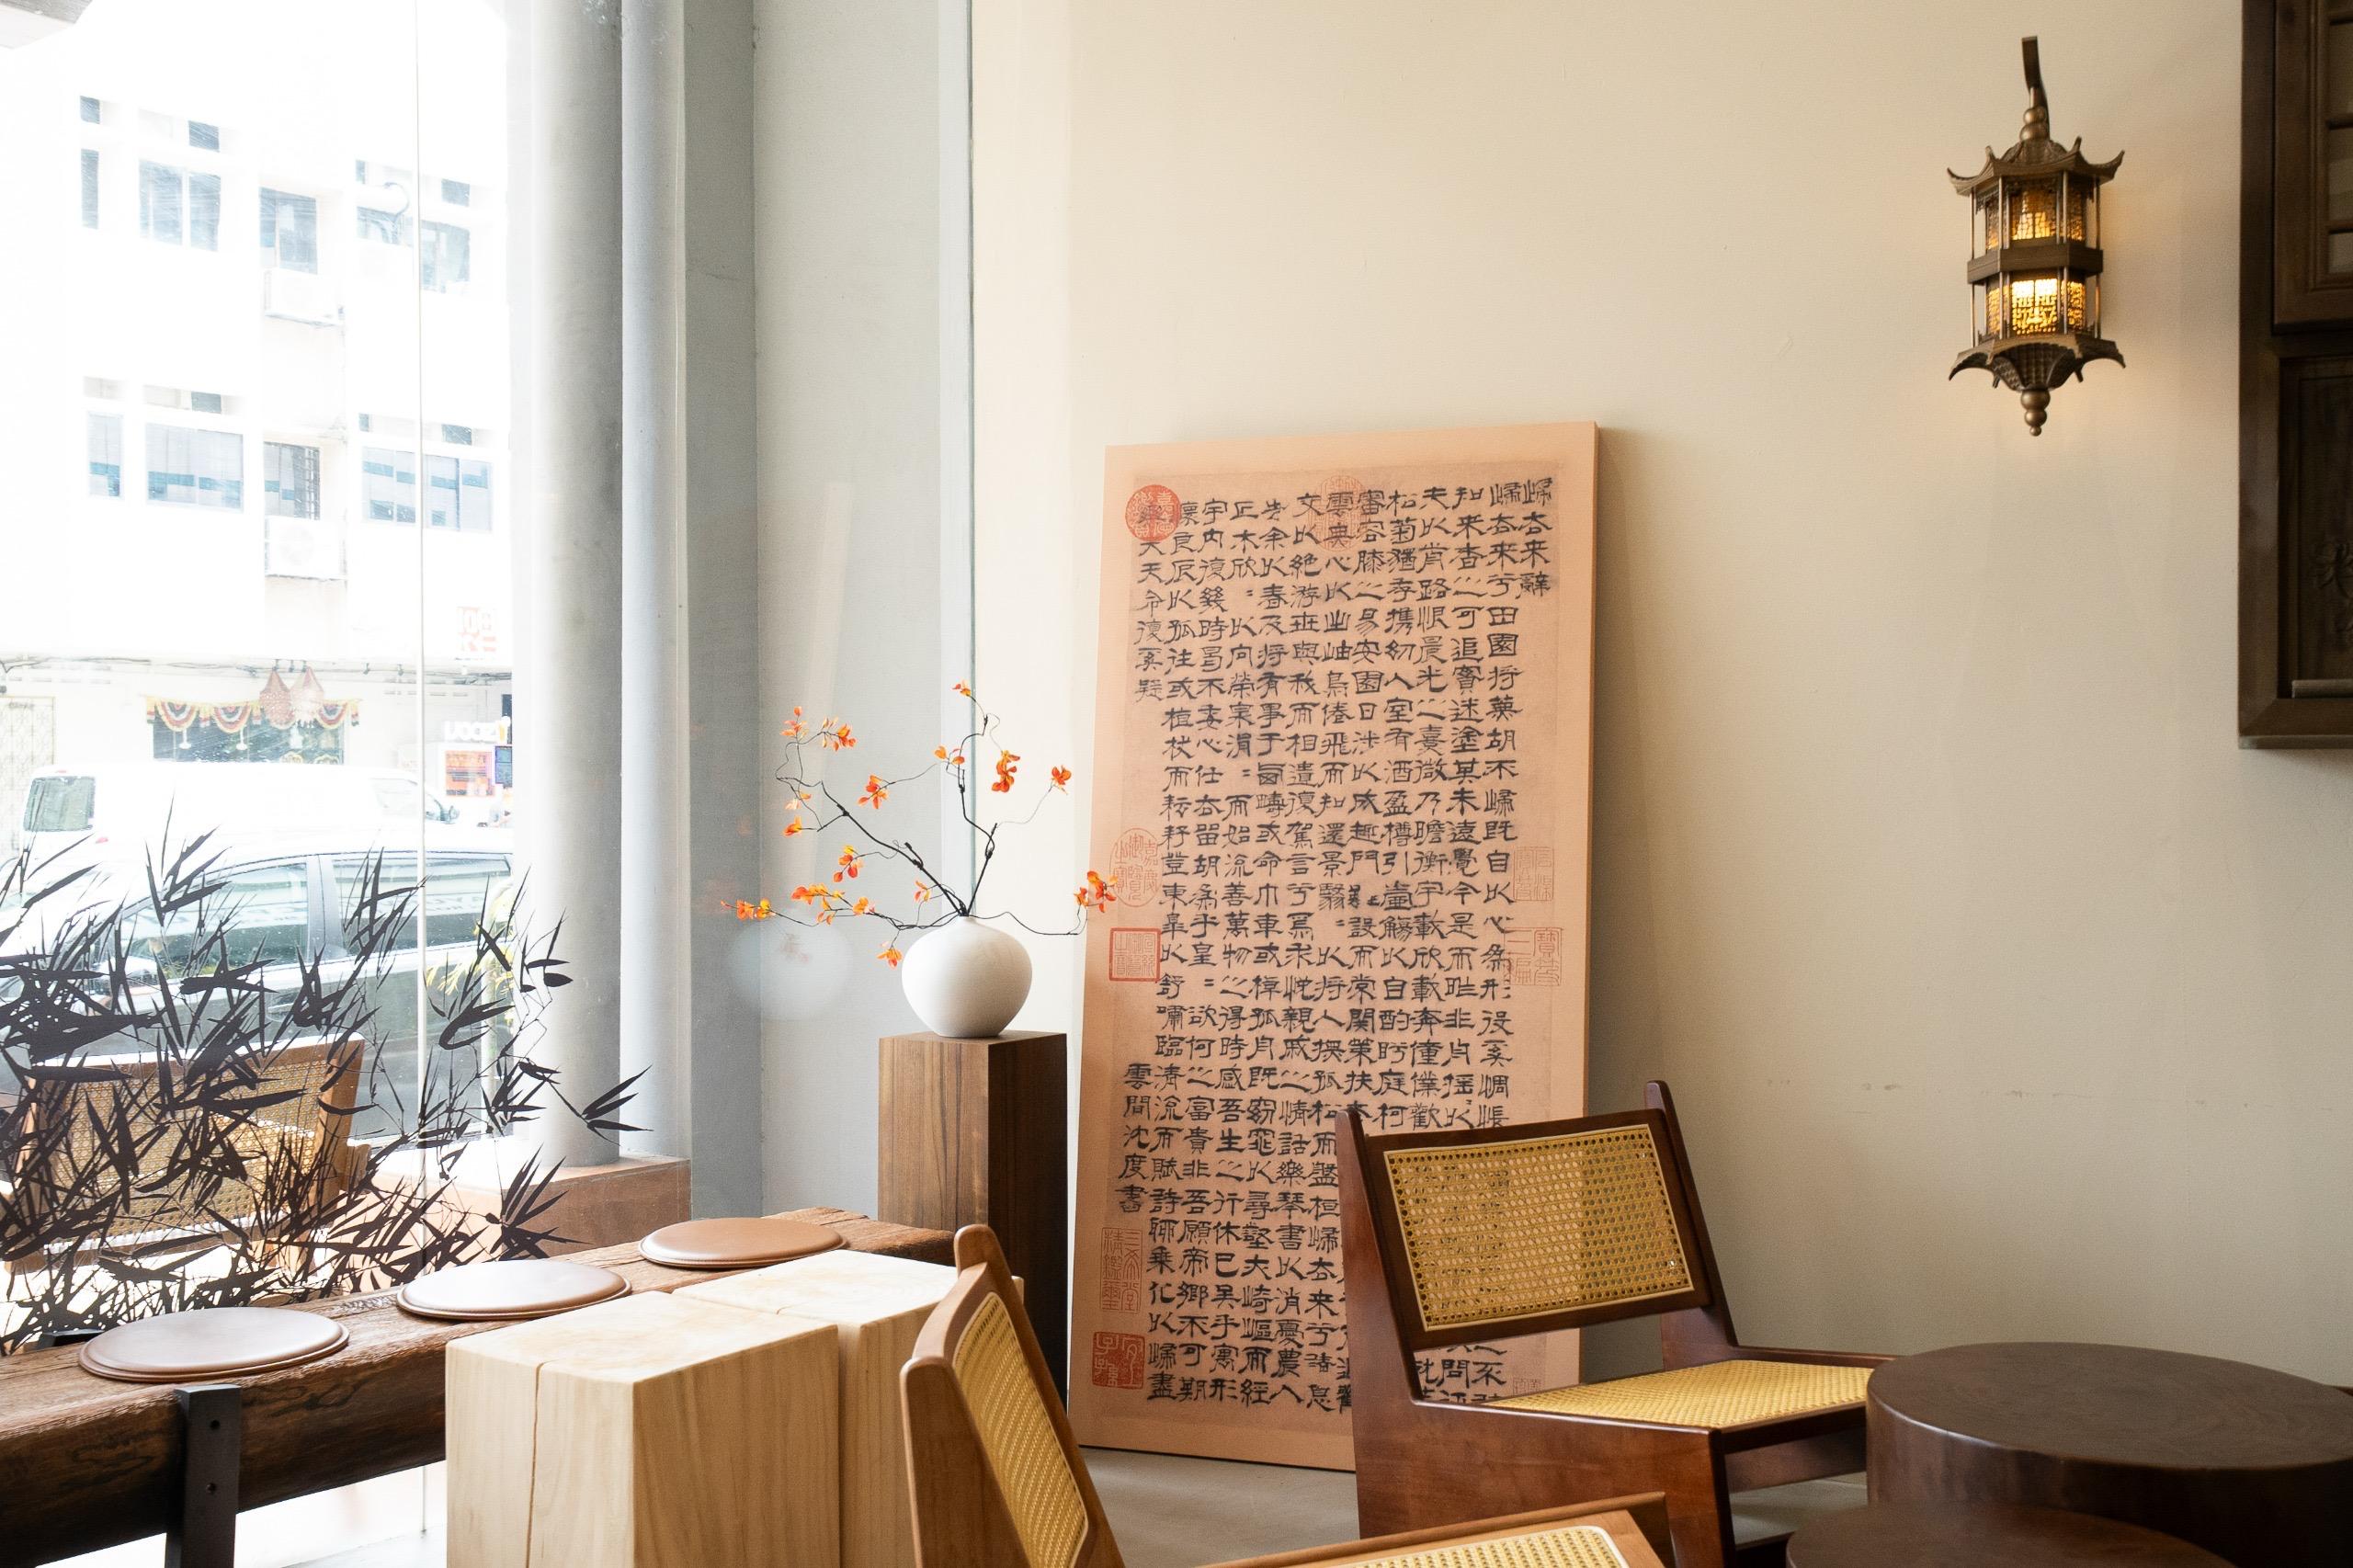 歸去來辭
歸去來兮田園將蕪胡不歸既自以心為形役奚惆悵
之不
知來者之可追實迷塗其未遠覺今是而昨非舟搖以
問征
夫以前路恨晨光之熹微乃瞻衡宇載欣載奔僮僕歡
松菊猶存攜幼入室有酒盈樽引壺觴以自酌眄庭柯
審容膝之易安園日涉以成趣門雖設而常關策扶老
雲無心以出岫鳥倦飛而知還景翳〻以將入撫孤松而盤桓歸去來兮請息
交以絕游世與我而相遺復駕言兮焉求悅親戚之情話樂琴書以消憂農人
告余以春及將有事于西疇或命巾車或棹孤舟既窈窕以尋壑亦崎嶇而經
丘木欣〻以向榮泉涓〻而始流善萬物之得時感吾生之行休已矣乎寓形
宇內復幾時曷不委心任去留胡為乎皇〻欲何之富貴非吾願帝鄉不可期
懷良辰以孤往或植杖而耘耔登東皋以舒嘯臨清流而賦詩聊乘化以歸盡
樂夫天命復奚疑
雲間沈度書